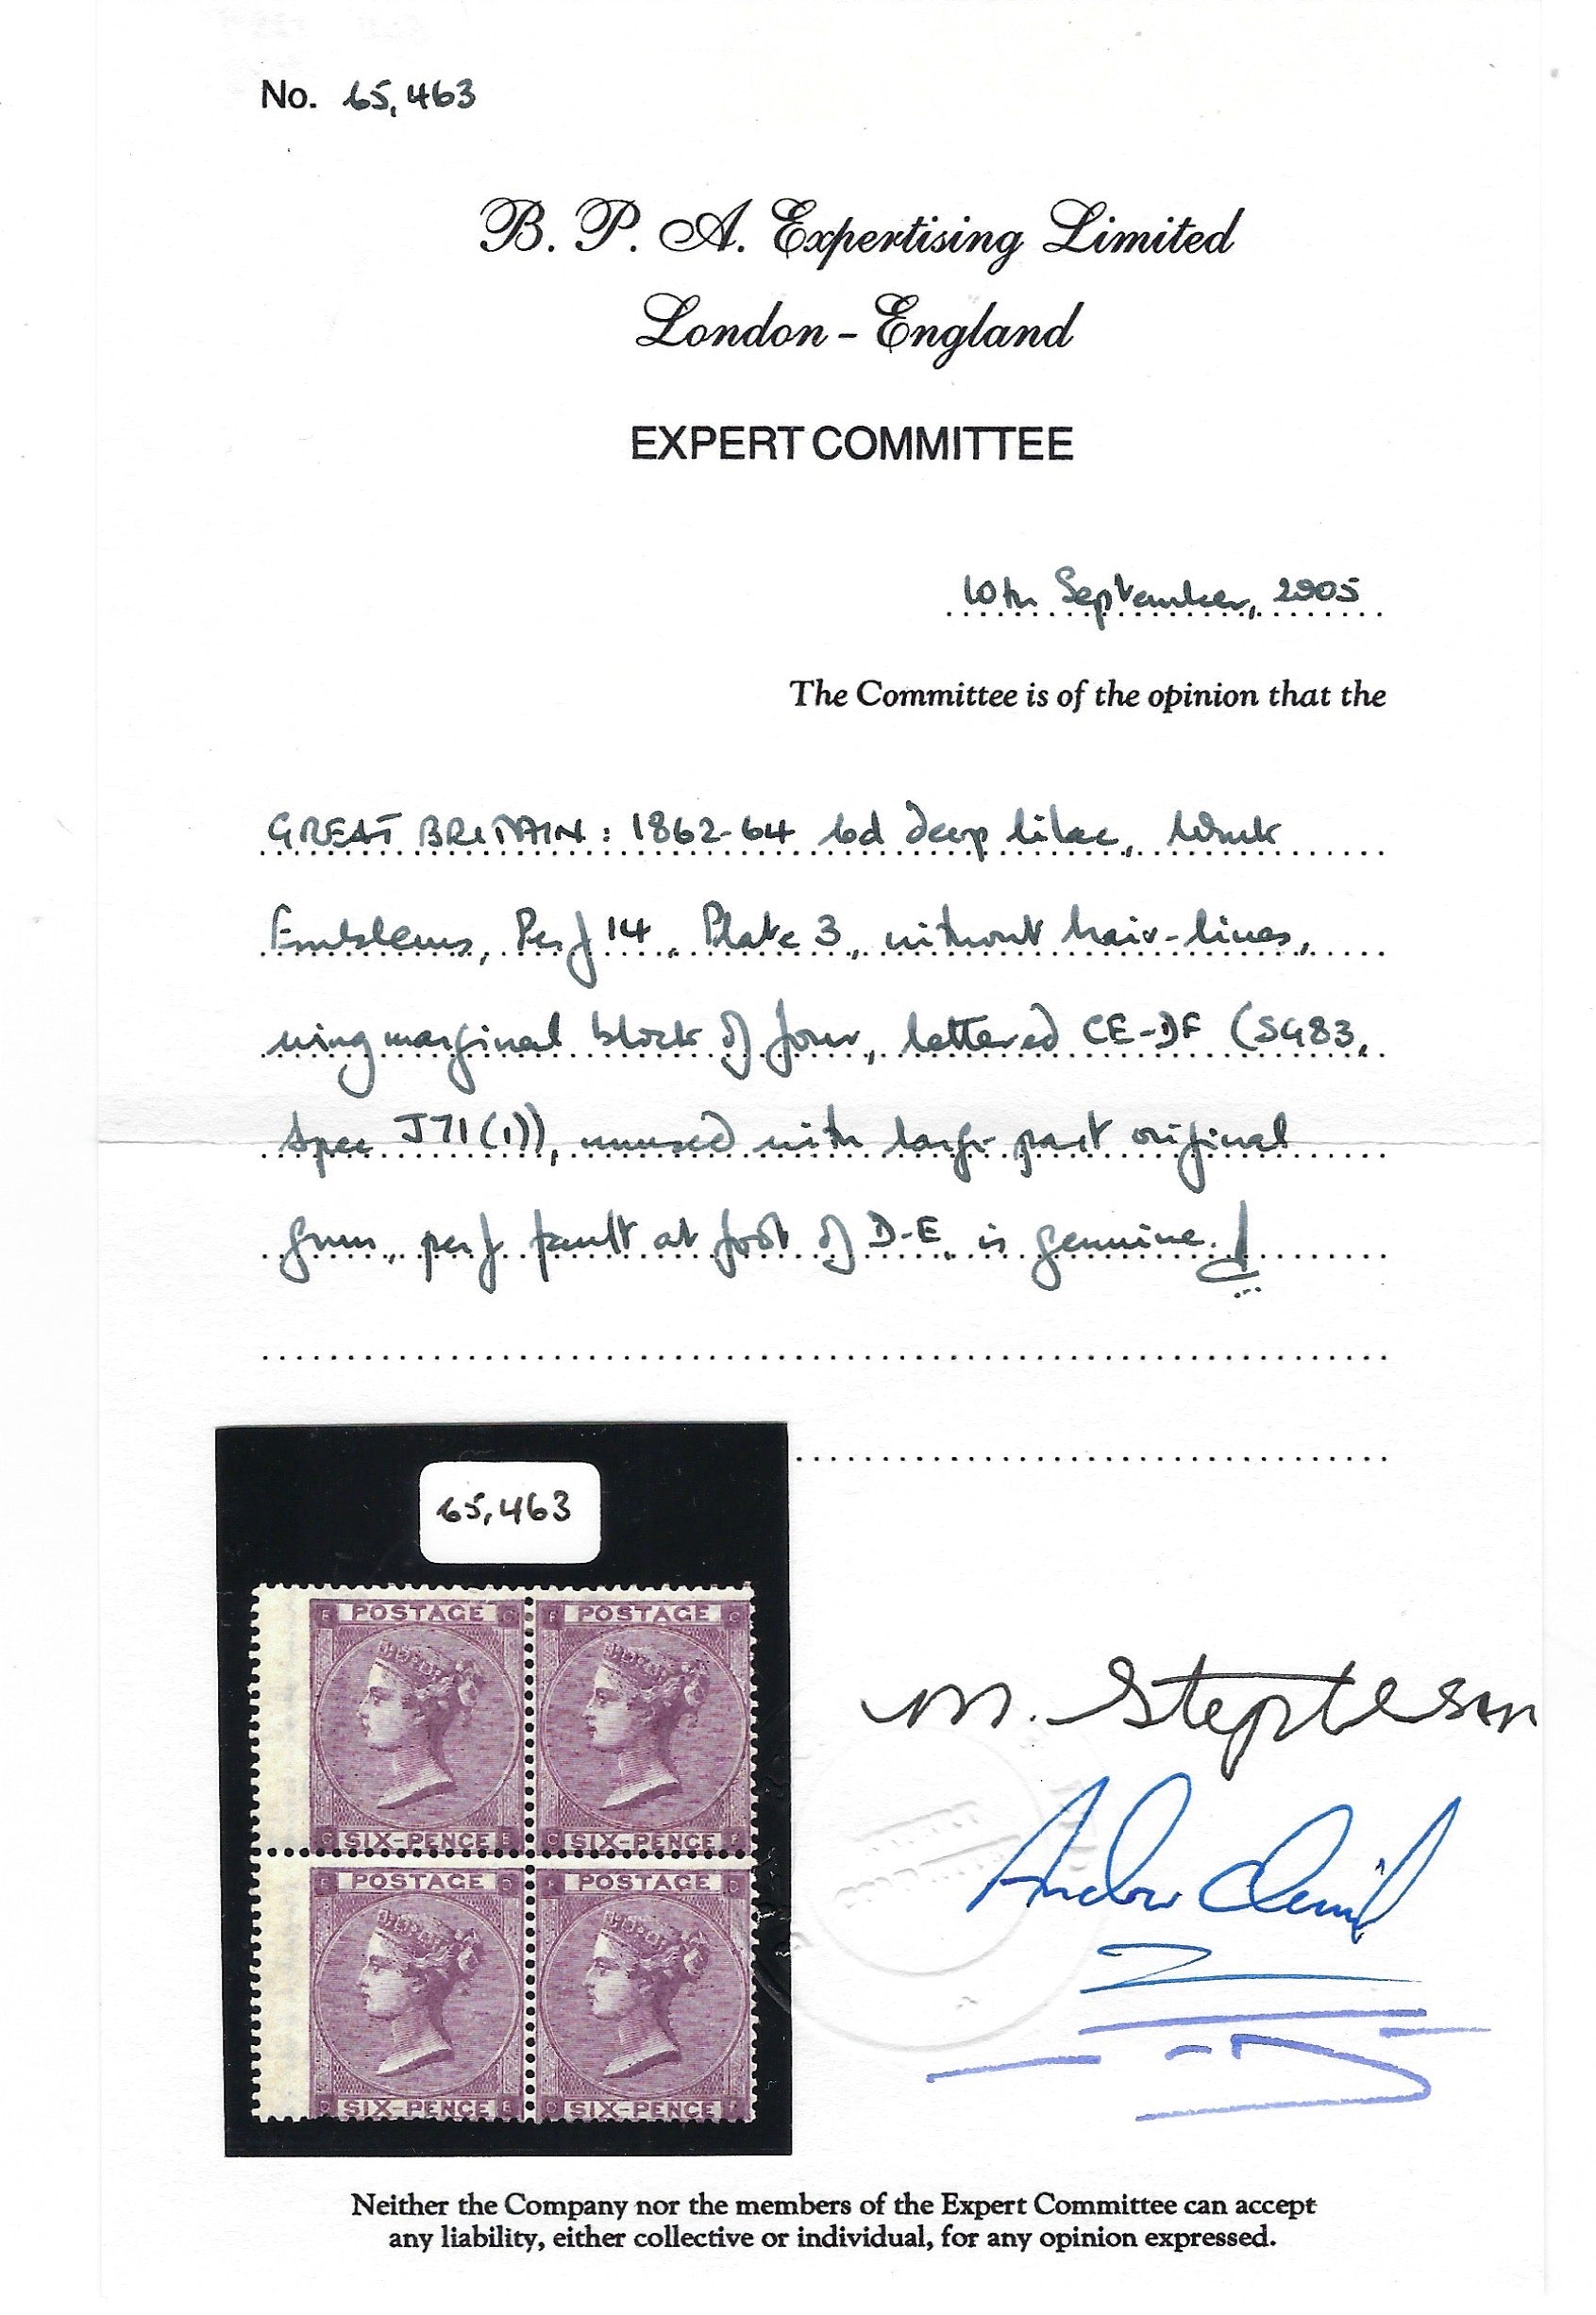 No. 65,463
B. P. A. Expertising Limited
London - England
EXPERT COMMITTEE
10th September, 2005
The Committee is of the opinion that the
GREAT BRITAIN: 1862-64 6d deep lilac, Wmk
Emblems, Perf 14, Plate 3, without hair-lines,
wing marginal block of four, lettered CE-DF (SG83,
Spec J71(1)), unused with large part original
gum, perf fault at foot of D-E, is genuine.
65,463
E POSTAGE C F POSTAGE C
C SIX-PENCE E C SIX-PENCE F
E POSTAGE D F POSTAGE D
D SIX-PENCE E D SIX-PENCE F
M. Stephenson
Andrew
Neither the Company nor the members of the Expert Committee can accept
any liability, either collective or individual, for any opinion expressed.